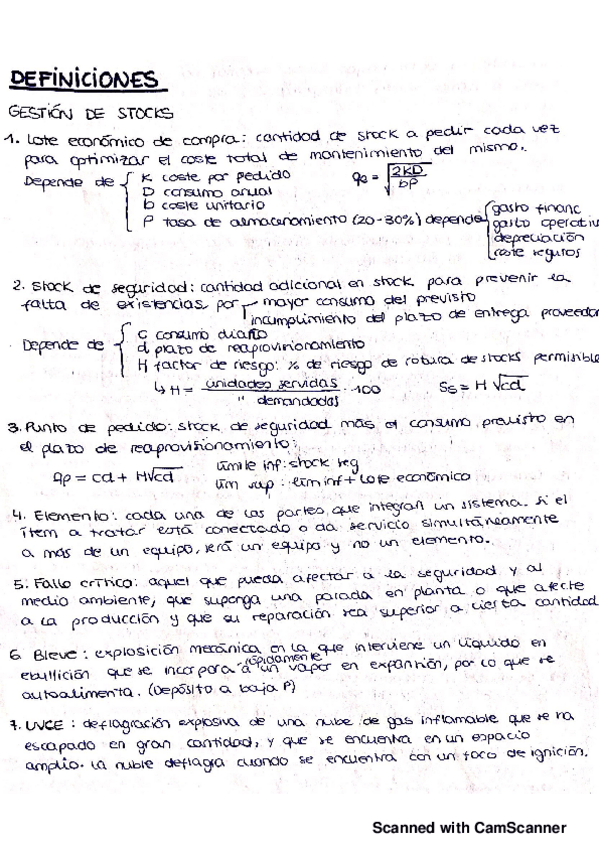 DEFINICIONES
GESTIÓN DE STOCKS
1. Lote económico de compra: cantidad de stock a pedir cada vez
para optimizar el coste total de mantenimiento del mismo.
Depende de { K coste por pedido   qe = √(2KD/bP)
D consumo anual
b coste unitario
P tasa de almacenamiento (20-30%) depende { gasto financ
gasto operativ
depreciación
coste seguros
2. Stock de seguridad: cantidad adicional en stock para prevenir la
falta de existencias por mayor consumo del previsto
incumplimiento del plazo de entrega proveedor
Depende de { C consumo diario
d plazo de reaprovisionamiento
H factor de riesgo: % de riesgo de rotura de stocks permisible
↳ H = unidades servidas / " demandadas · 100   Ss = H √cd
3. Punto de pedido: stock de seguridad más el consumo previsto en
el plazo de reaprovisionamiento:
qp = cd + H√cd   límite inf: stock seg
lím sup: lím inf + lote económico
4. Elemento: cada una de las partes que integran un sistema. Si el
ítem a tratar está conectado o da servicio simultáneamente
a más de un equipo, será un equipo y no un elemento.
5. Fallo crítico: aquel que pueda afectar a la seguridad y al
medio ambiente, que suponga una parada en planta o que afecte
a la producción y que su reparación sea superior a cierta cantidad
6. Bleve: explosición mecánica en la que interviene un líquido en
ebullición que se incorpora rápidamente a un vapor en expansión, por lo que se
autoalimenta. (Depósito a baja P)
7. UVCE: deflagración explosiva de una nube de gas inflamable que se ha
escapado en gran cantidad, y que se encuentra en un espacio
amplio. La nube deflagra cuando se encuentra con un foco de ignición.
Scanned with CamScanner